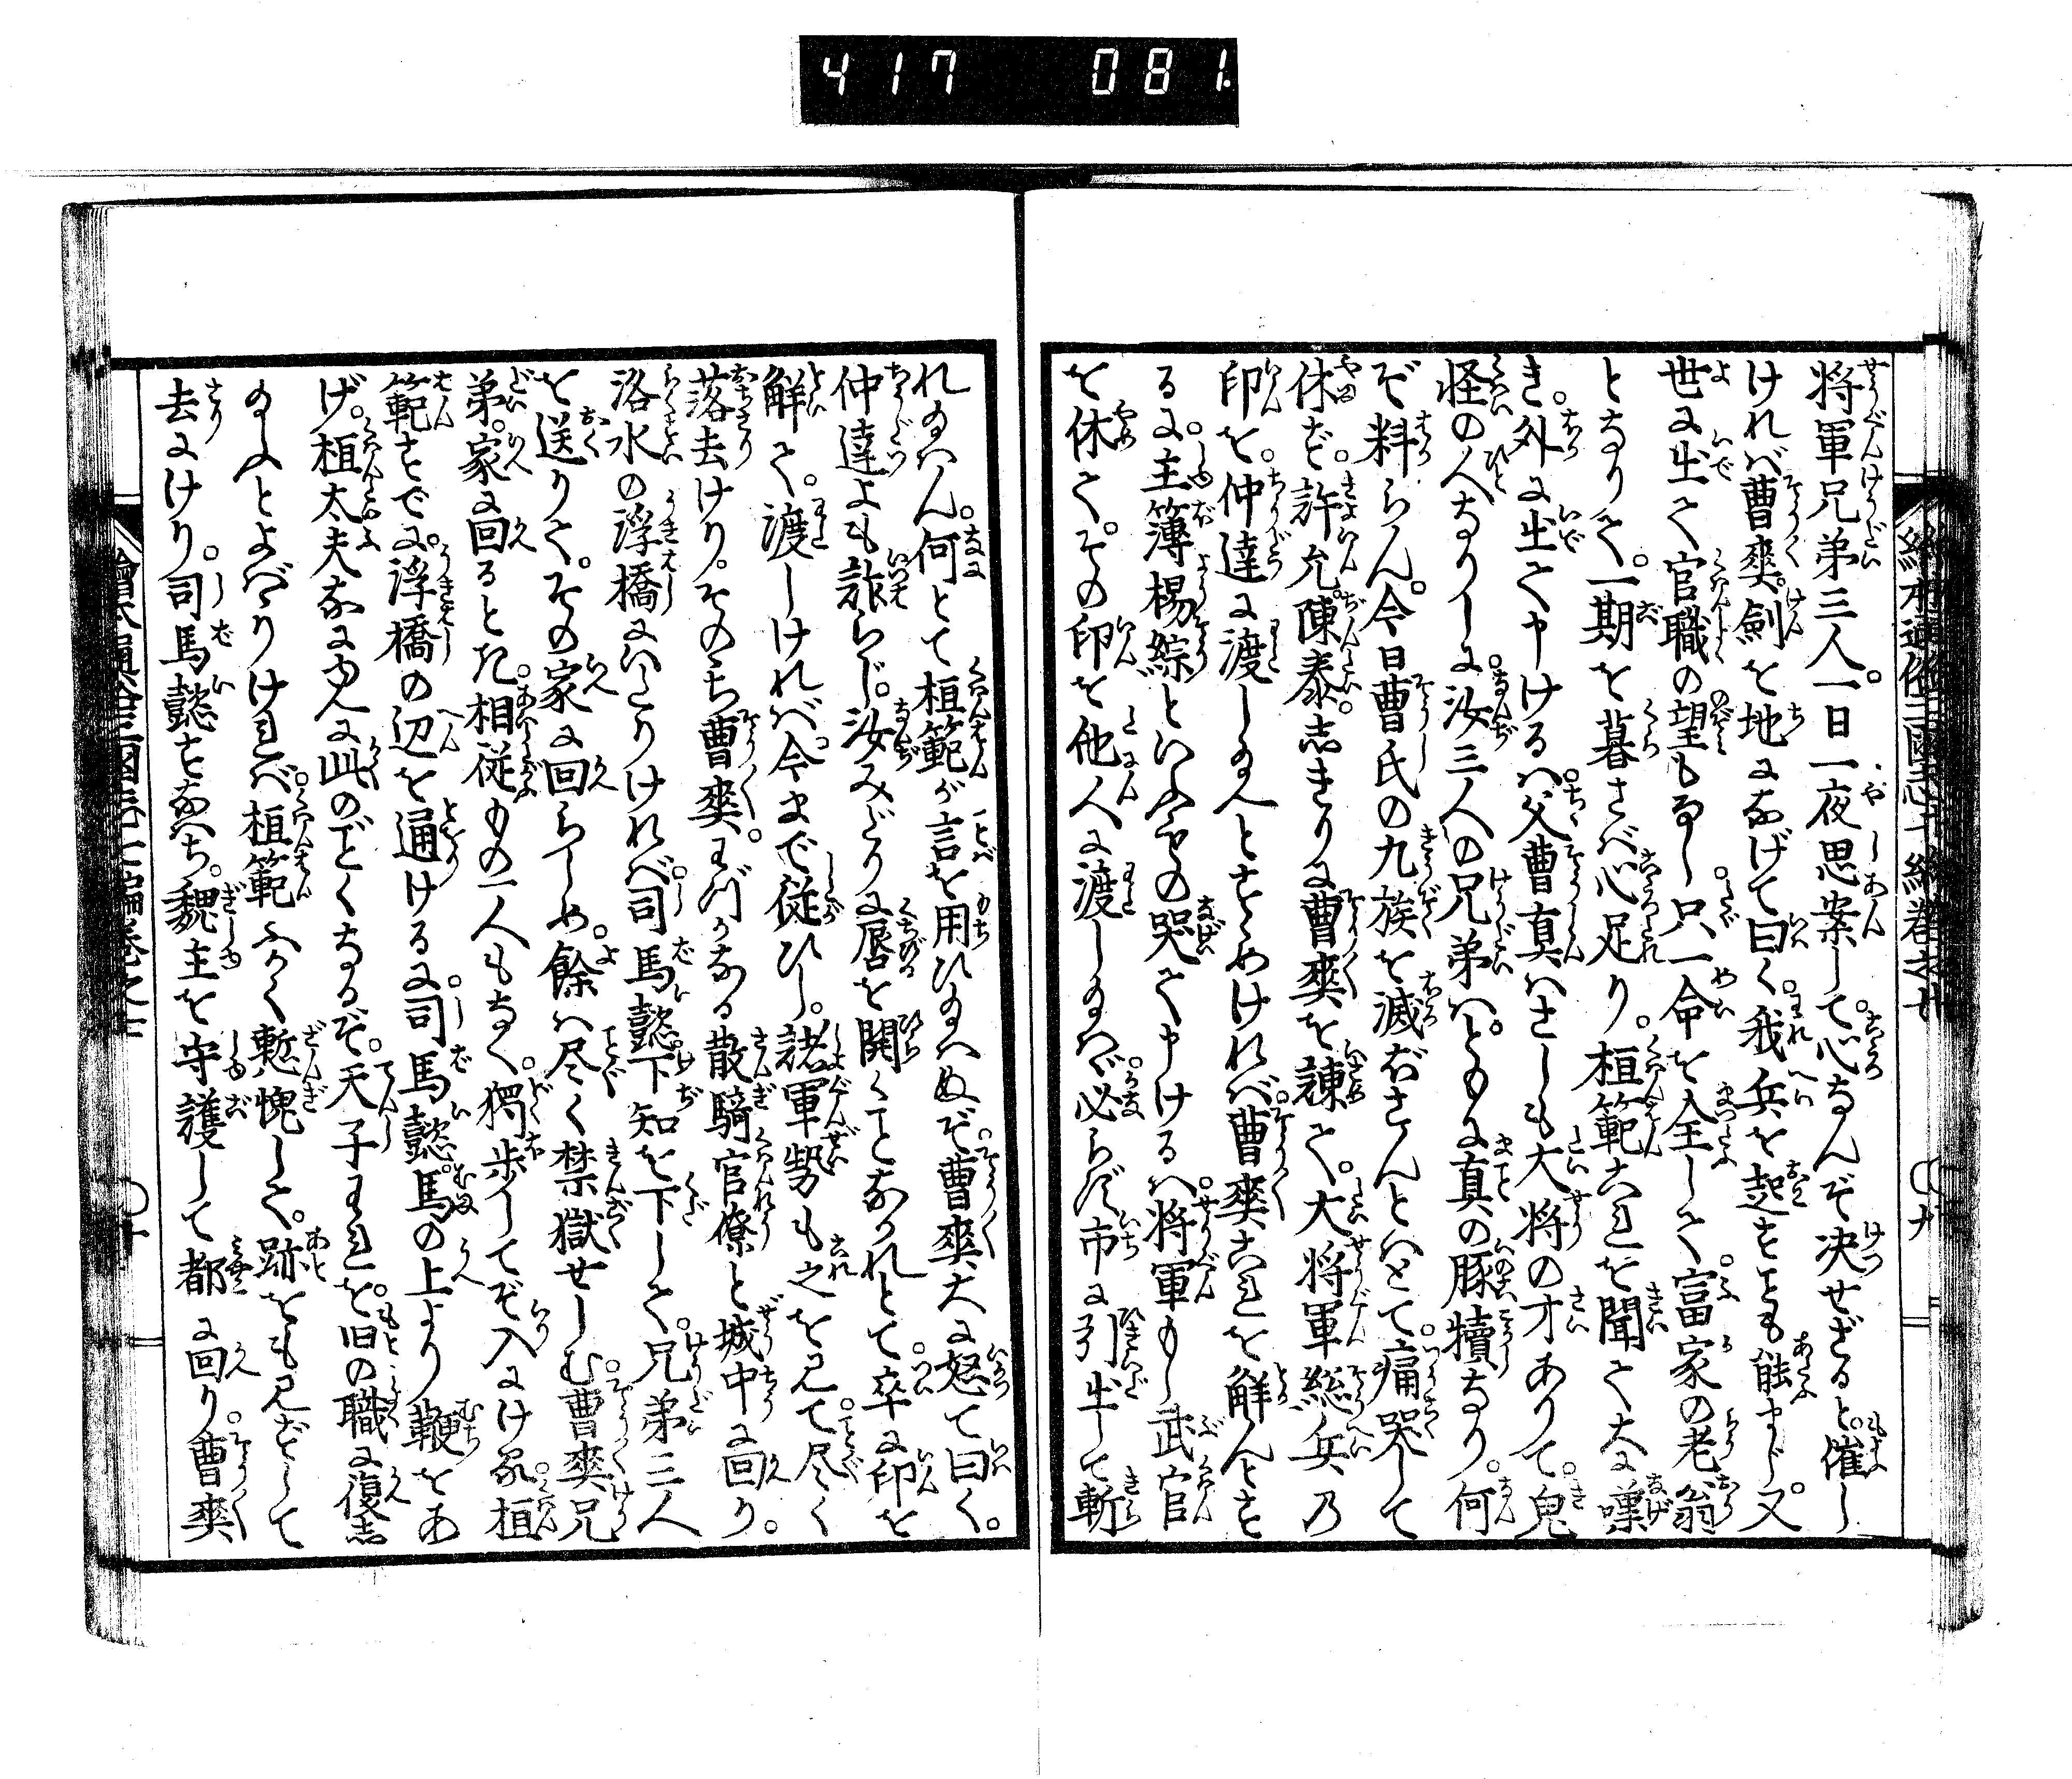 417 081
将軍兄弟三人一日一夜思案して心なんぞ決せざると催し
ければ曹爽剣を地になげて曰く我兵を起すとも能まじ又
世に出て官職の望もなし只一命を全して富家の老翁
となりて一期を暮さば心足り桓範これを聞て大に嘆
き外に出て申けるハ父曹真ハさしも大将の才ありて鬼
怪の人なりしに汝三人の兄弟ハともに真の豚犢なり何
ぞ料らん今日曹氏の九族を滅ぼさんとハとて痛哭して
休ず許允陳泰しきりに曹爽を諫て大将軍総兵の
印を仲達に渡し給へとすゝめければ曹爽これを解んとす
るに主簿楊綜といふもの哭て申けるハ将軍もし武官
を休てその印を他人に渡し給ハヾ必らず市に引出して斬
れ給ハん何とて桓範が言を用ひ給ハぬぞ曹爽大に怒て曰く
仲達よも詐らじ汝みだりに唇を開くことなかれとて卒に印を
解て渡しければ今まで従ひし諸軍勢も之を見て尽く
落去けりそのゝち曹爽わづかなる散騎官僚と城中に回り
洛水の浮橋にいたりければ司馬懿下知を下して兄弟三人
を送りてその家に回らしめ餘ハ尽く禁獄せしむ曹爽兄
弟家に回るとき相従もの一人もなく獨歩してぞ入にける桓
範すでに浮橋の辺を通けるに司馬懿馬の上より鞭をあ
げ桓太夫なにゆへに此のごとくなるぞ天子すでに旧の職に復し
給ふとよばゝりければ桓範ふかく慙愧して跡をも見ずして
去にけり司馬懿すなハち魏主を守護して都に回り曹爽